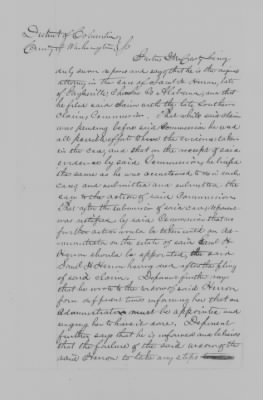 District of Columbia
County of Washington
duly sworn deposes and says that he is the
attorney in the case of Saml H. Herron, late
of Alabama, and that
he filed said claim with the late Southern
Claims Commission. That while said claim
was pending before said Commission he was
the testimony taken
in the case, and that on the receipt of said
evidence by said Commission, he
the same as he was accustomed to do in such
cases and submitted
case to the action of said Commission.
That after the submission of said case, deponent
was notified by said Commission that no
further action would be taken until an
administrator on the estate of said Saml H.
Herron should be appointed, the said
Saml H. Herron having died after the filing
of said claim. Deponent further says
that he wrote to the widow of said Herron
four or five times informing her that an
Administrator must be appointed and
urging her to have it done. Deponent
further says that he is informed and believes
that the failure of the said widow of the
said Herron to take any steps